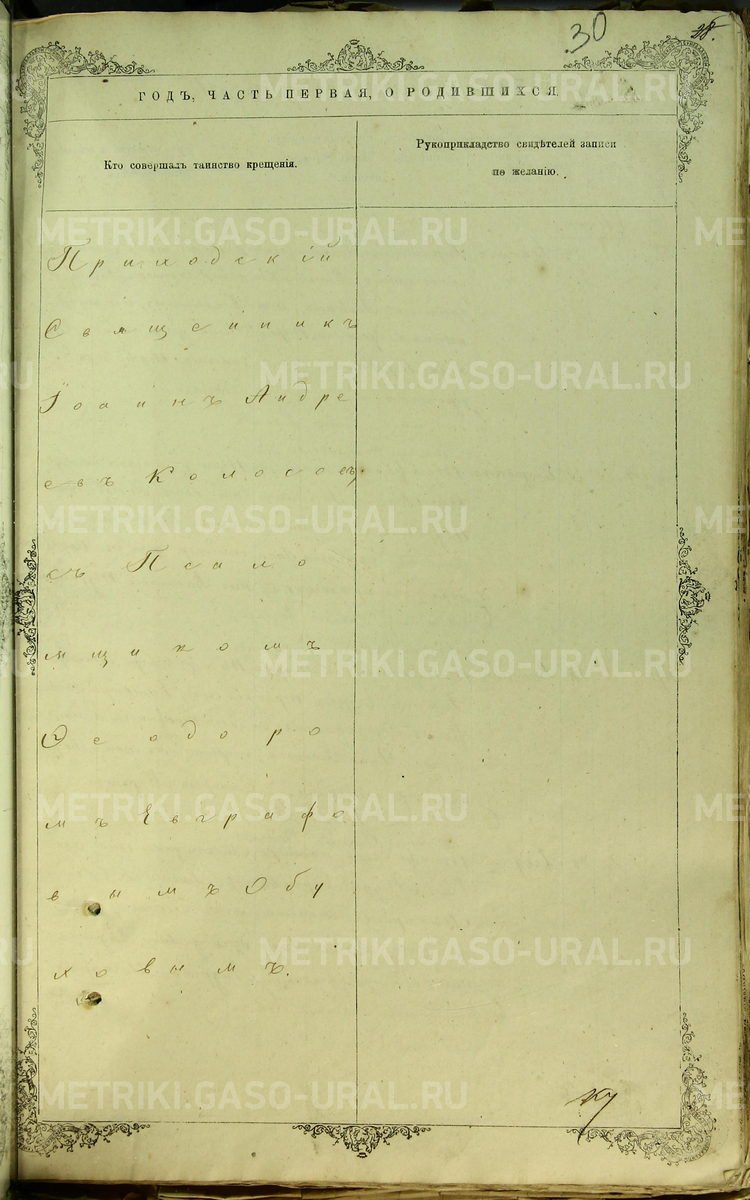 30
28.
ГОДЪ, ЧАСТЬ ПЕРВАЯ, О РОДИВШИХСЯ
Кто совершалъ таинство крещенія.
Рукоприкладство свидѣтелей записи
по желанію.
Приходскій
Священникъ
Іоаннъ Андре
евъ Колосовъ
съ Псало
мщикомъ
Ѳеодоро
мъ Евграфо
вымъ Обу
ховымъ.
METRIKI.GASO-URAL.RU